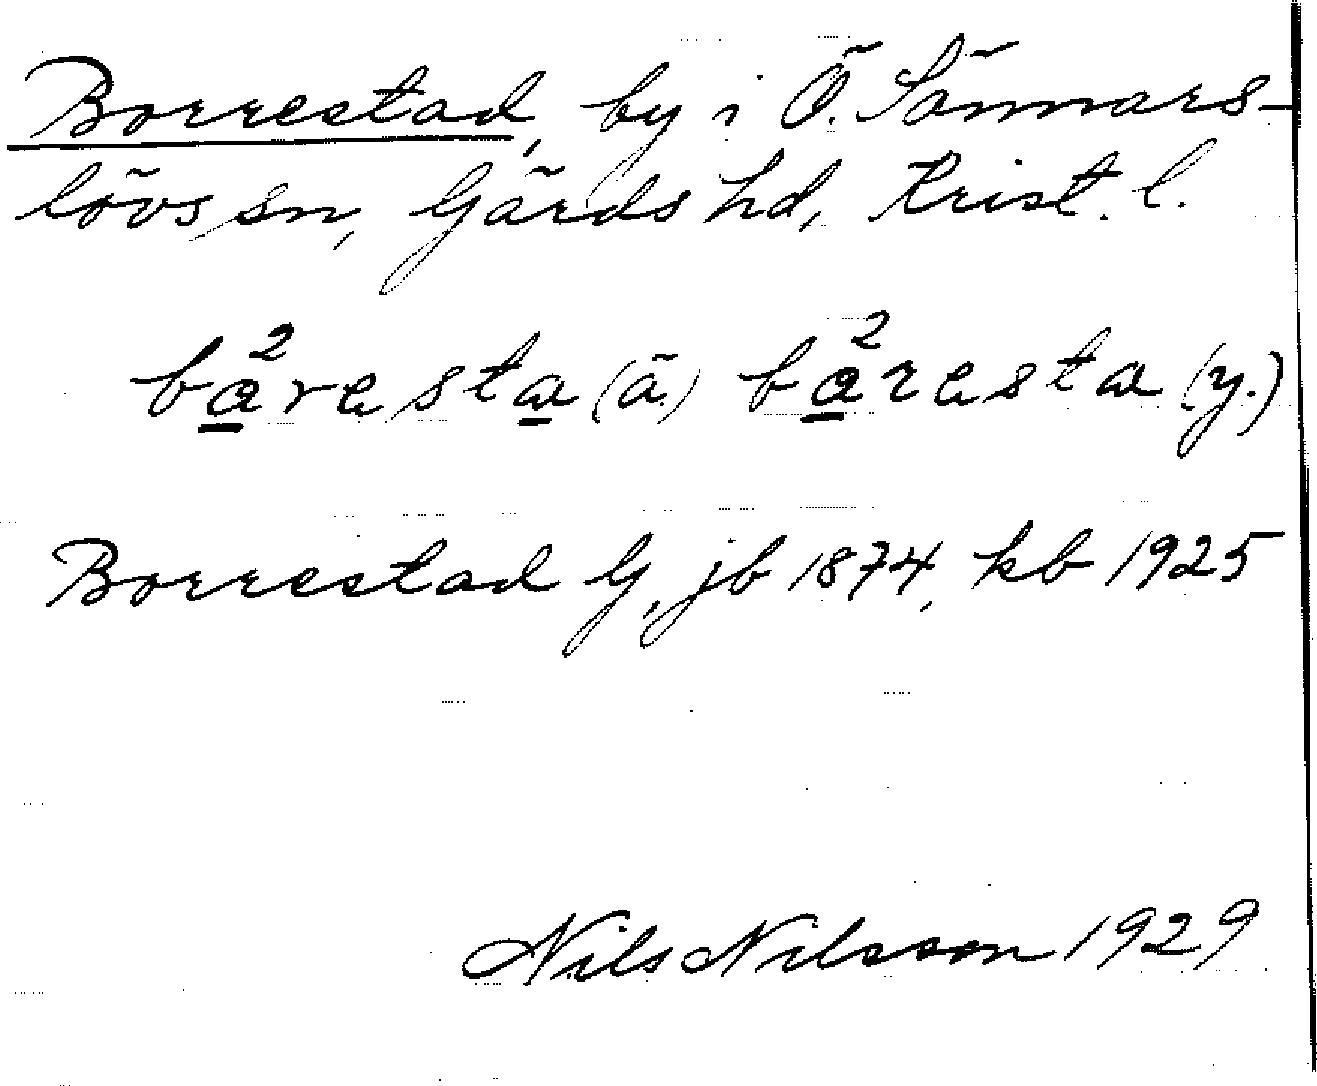 Borrestad, by i Ö. Sönnars-
lövs sn, Gärds hd, Krist. l.
bå²resta (ä.) bå²resta (y.)
Borrestad G, jb 1874, kb 1925
Nils Nilsson 1929